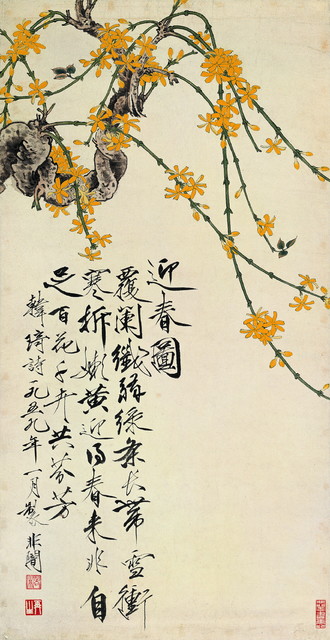 迎春圖
覆闌纖弱綠条长帶雪衝
寒折嫩黄迎得春来非自
足百花千卉共芬芳
韓琦詩一九五九年一月製 非闇